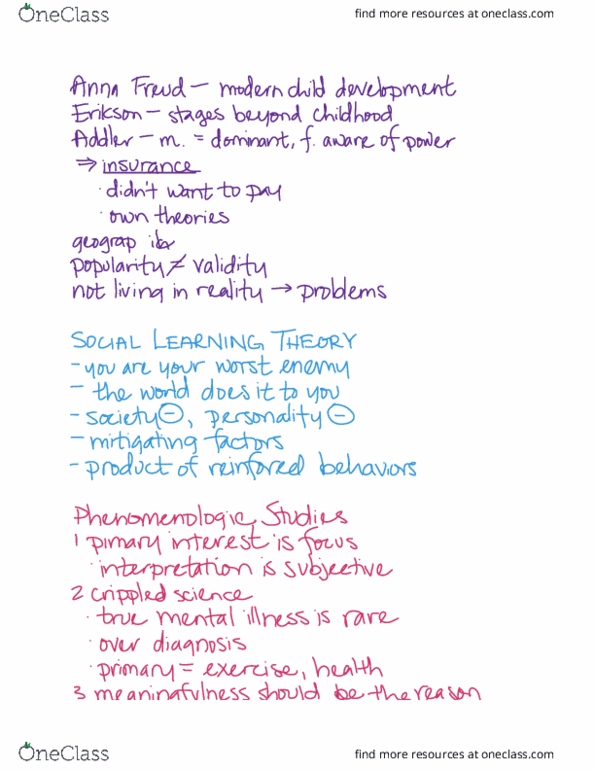 OneClass
find more resources at oneclass.com
Anna Freud — modern child development
Erikson — stages beyond childhood
Addler — m. = dominant, f. aware of power
⇒ insurance
· didn't want to pay
· own theories
geograp
popularity ≠ validity
not living in reality → problems
SOCIAL LEARNING THEORY
- you are your worst enemy
- the world does it to you
- society ⊖, personality ⊖
- mitigating factors
- product of reinforced behaviors
Phenomenologic Studies
1 pimary interest is focus
· interpretation is subjective
2 crippled science
· true mental illness is rare
· over diagnosis
· primary = exercise, health
3 meaningfulness should be the reason
OneClass
find more resources at oneclass.com